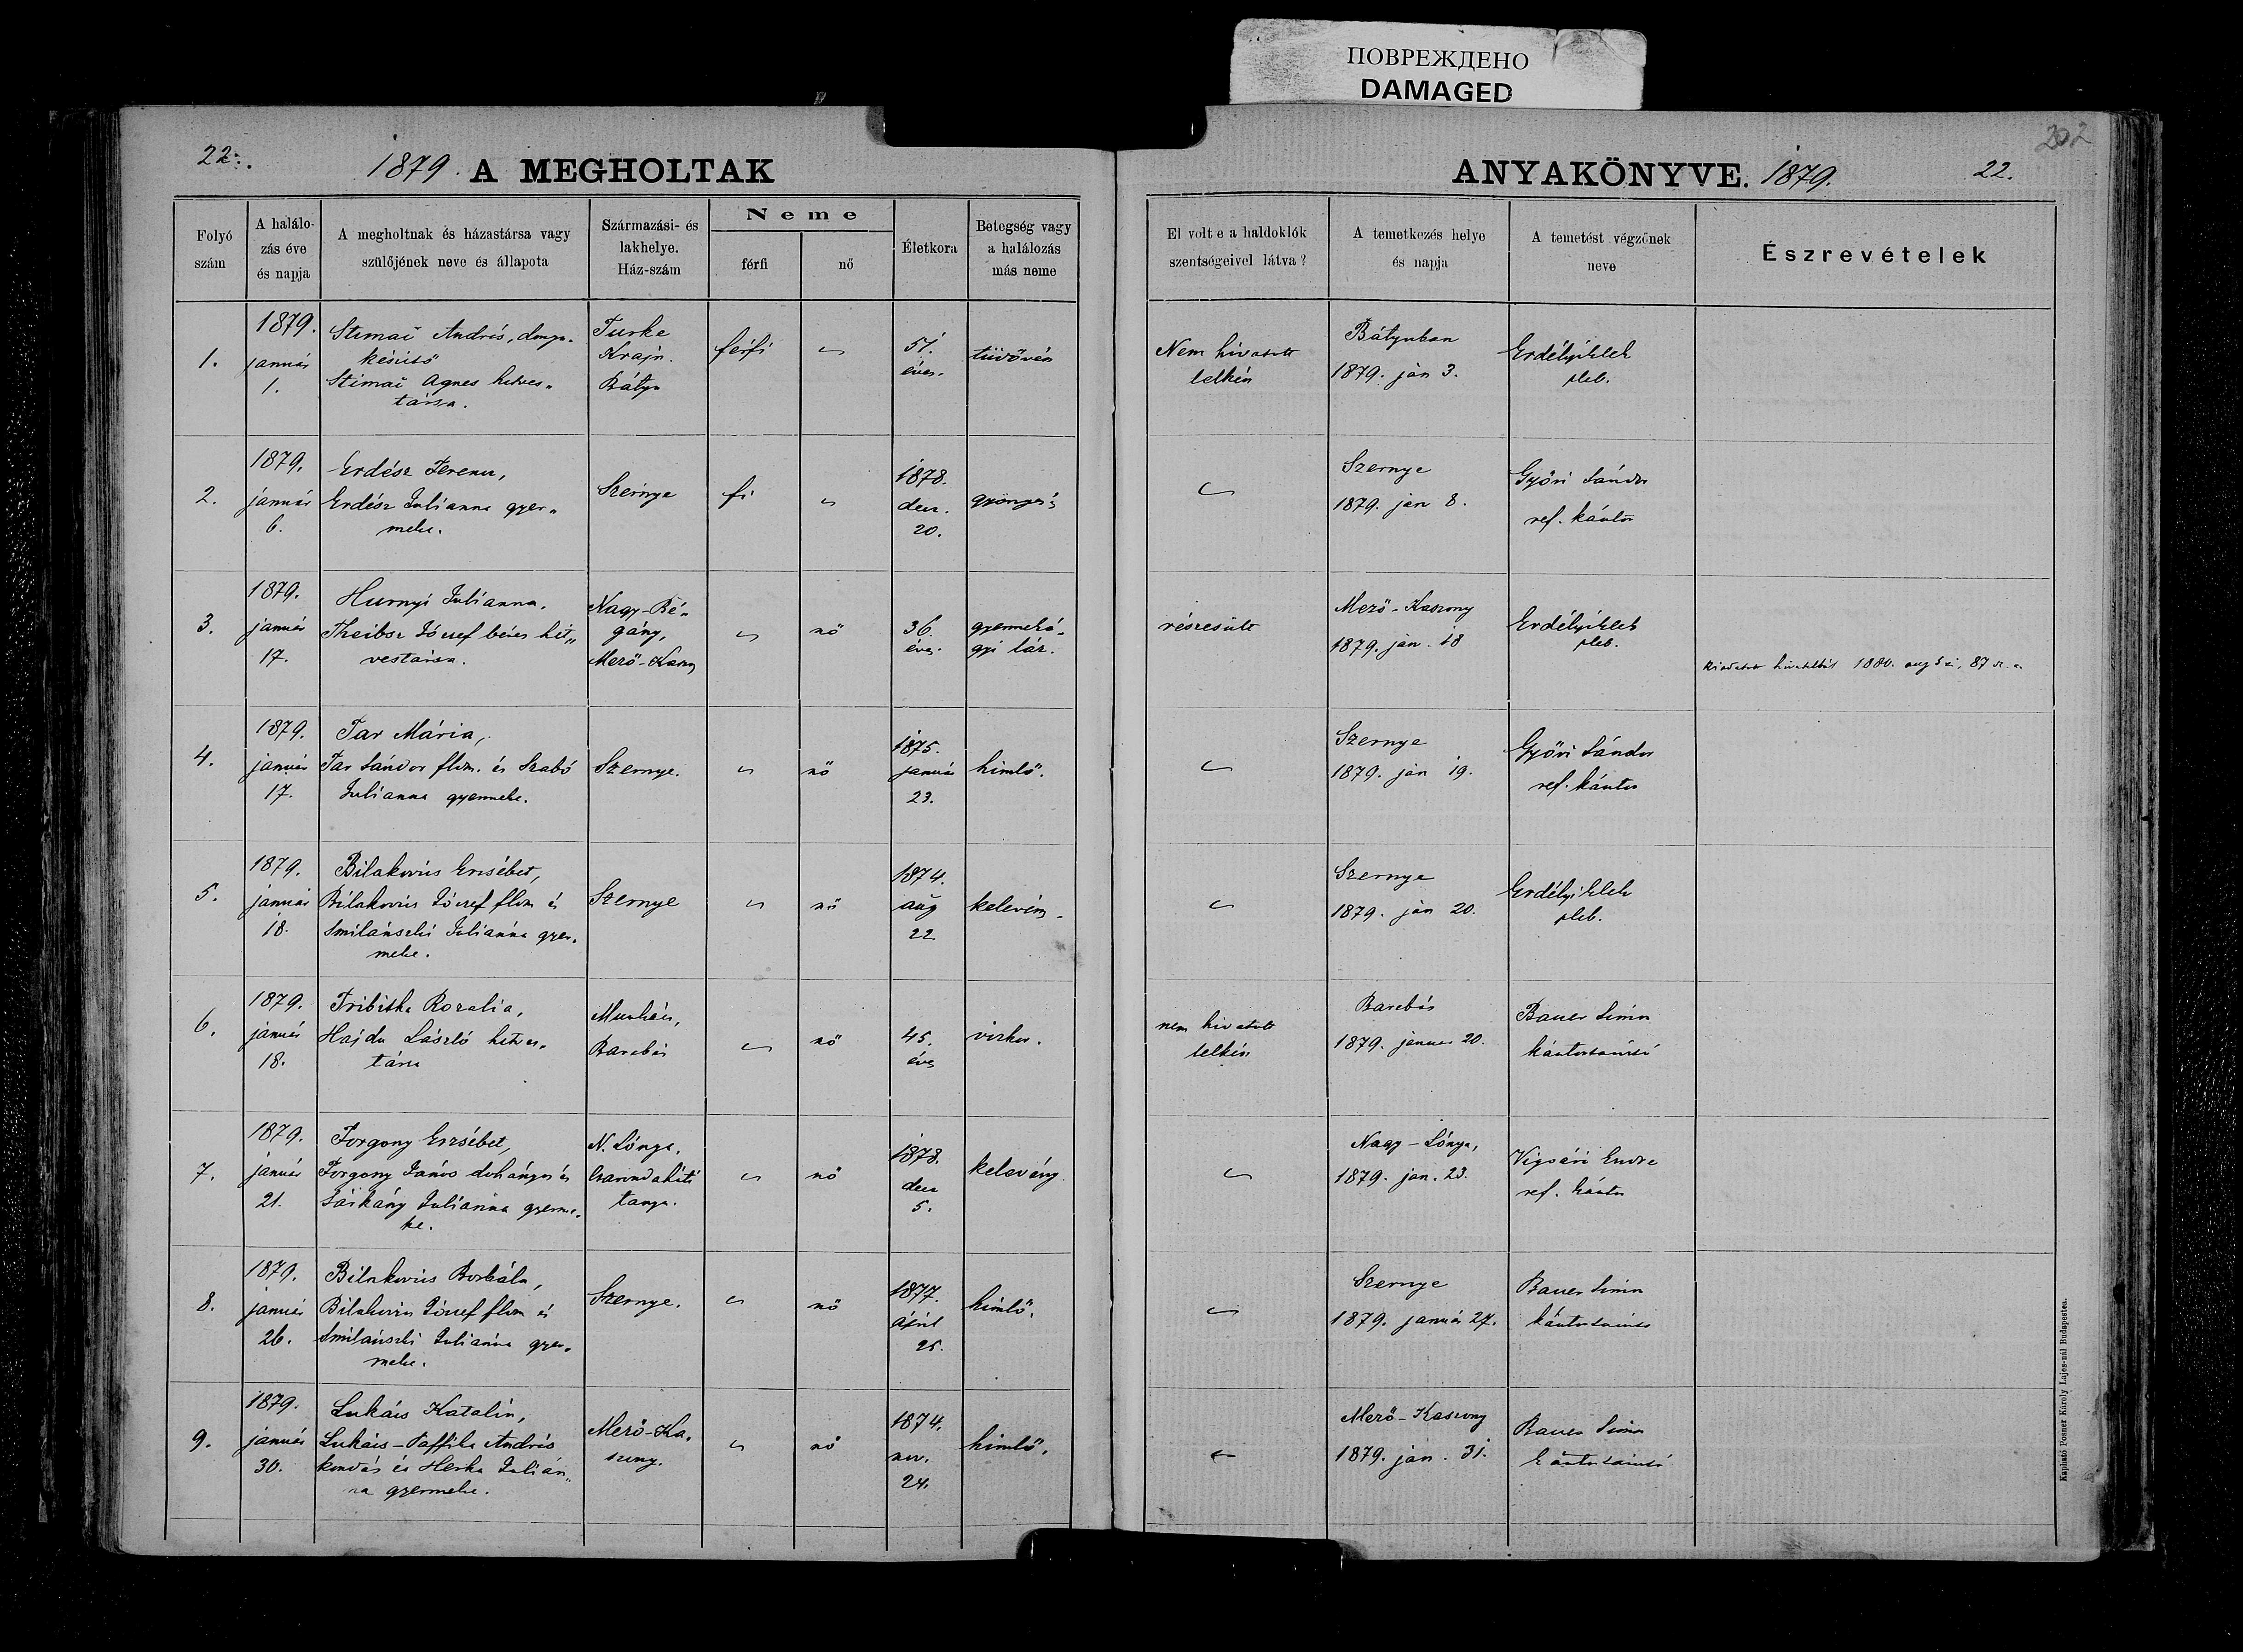 ПОВРЕЖДЕНО
DAMAGED
202
22.
1879. A MEGHOLTAK
ANYAKÖNYVE. 1879.
22.
Folyó szám
A halálo-zás éve és napja
A megholtnak és házastársa vagy szülőjének neve és állapota
Származási- és lakhelye. Ház-szám
Neme
férfi
nő
Életkora
Betegség vagy a halálozás más neme
El volt e a haldoklók szentségeivel látva?
A temetkezés helye és napja
A temetést végzőnek neve
Észrevételek
1.
1879.
január
1.
András,
Ágnes hitves„
társa.
Turke
Krajn.
Bátyu
férfi
51.
éves.
tüdővész
Nem hivatott
lelkész
Bátyuban
1879. ján 3.
Erdélyi Elek
pleb.
2.
1879.
január
6.
Erdész Ferencz,
Erdész Julianna gyer„
meke.
Szernye
fi
1878.
decz.
20.
Szernye
1879. ján 8.
Győri Sándor
ref. kántor
3.
1879.
január
17.
Hurnyi Julianna.
József béres hit„
vestársa.
Nagy-Bé„
gány,
Mező-Kasz
nő
36.
éves.
gyermeká„
gyi láz.
részesült
Mező-Kaszony
1879. ján. 18
Erdélyi Elek
pleb.
1880. aug
4.
1879.
január
17.
Tar Mária,
Tar Sándor flm. és Szabó
Julianna gyermeke.
Szernye.
nő
1875.
január
23.
himlő.
Szernye
1879. ján 19.
Győri Sándor
ref. kántor
5.
1879.
január
18.
Bilakovics Erzsébet,
Bilakovics József flm és
Smilánszki Juliánna gyer„
meke.
Szernye
nő
1874.
aug
22.
Szernye
1879. ján 20.
Erdélyi Elek
pleb.
6.
1879.
január
18.
Rozália,
Hajdu László hitves„
társa
Munkács,
Barabás
nő
45.
éves
nem hivatott
lelkész
Barabás
1879. január 20.
Bauer Simon
kántortanító
7.
1879.
január
21.
Forgony Erzsébet,
Forgony János dohányos és
Sárkány Juliánna gyerme„
ke.
N. Lónya.
tanya.
nő
1878.
decz
5.
kelevény
Nagy-Lónya,
1879. jan. 23.
Vigvári Endre
ref. kántor
8.
1879.
január
26.
Bilakovics Borbála,
Bilakovics József flm és
Smilánszki Juliánna gyer„
meke.
Szernye.
nő
1877.
ápril
25.
himlő.
Szernye
1879. január 27.
Bauer Simon
kántortanító
9.
1879.
január
30.
Lukács Katalin,
Lukács-Paffila András
kondás és Herka Julián„
na gyermeke.
Mező-Ka„
szony.
nő
1874.
nov.
24.
himlő.
Mező-Kaszony
1879. ján. 31.
Bauer Simon
kántortanító
Kapható Posner Károly Lajos-nál Budapesten.